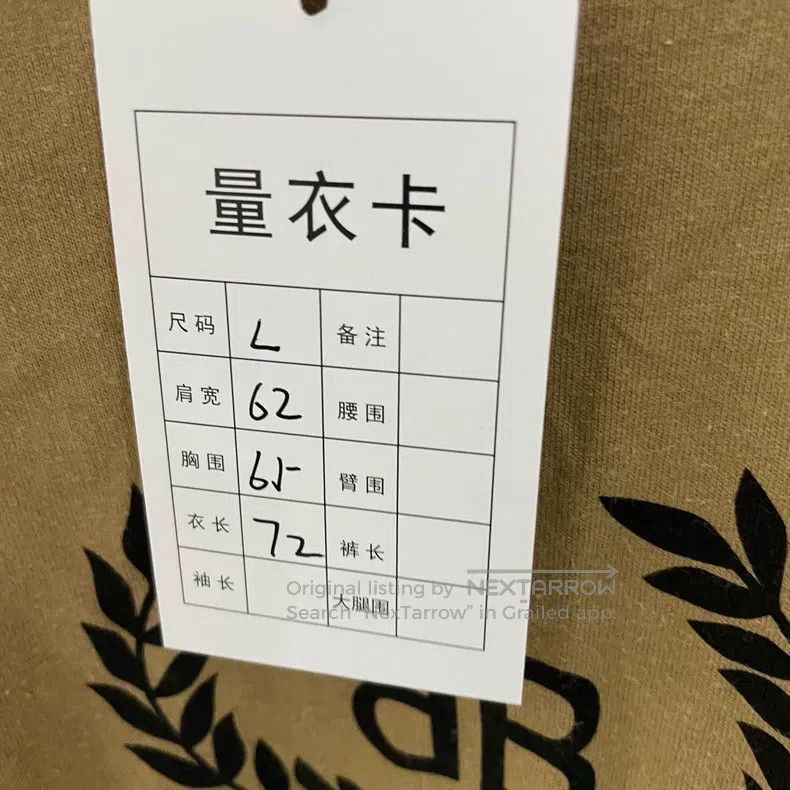 量衣卡
尺码 L 备注
肩宽 62 腰围
胸围 65 臂围
衣长 72 裤长
袖长 大腿围
Original listing by NEXTARROW
Search "NexTarrow" in Grailed app